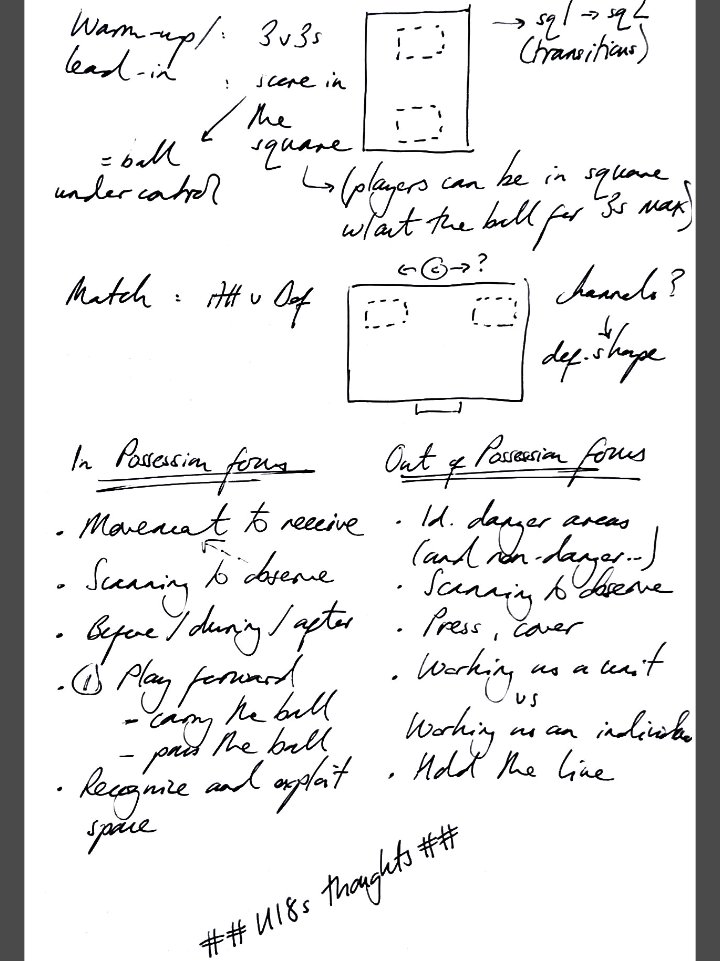 Warm-up/ : 3v3s
lead-in : score in
the
square
= ball
under control
→ sq1 → sq2
(transitions)
↳ (players can be in square
w/out the ball for 3s max)
Match : Att v Def
← C → ?
channels?
↓
def. shape
In Possession focus
· Movement to receive
· Scanning to observe
· Before / during / after
· ① Play forward
- carry the ball
- pass the ball
· Recognize and exploit
space
Out of Possession focus
· Id. danger areas
(and non-danger...)
· Scanning to observe
· Press, cover
· Working as a unit
vs
Working as an individual
· Hold the line
## U18s thoughts ##